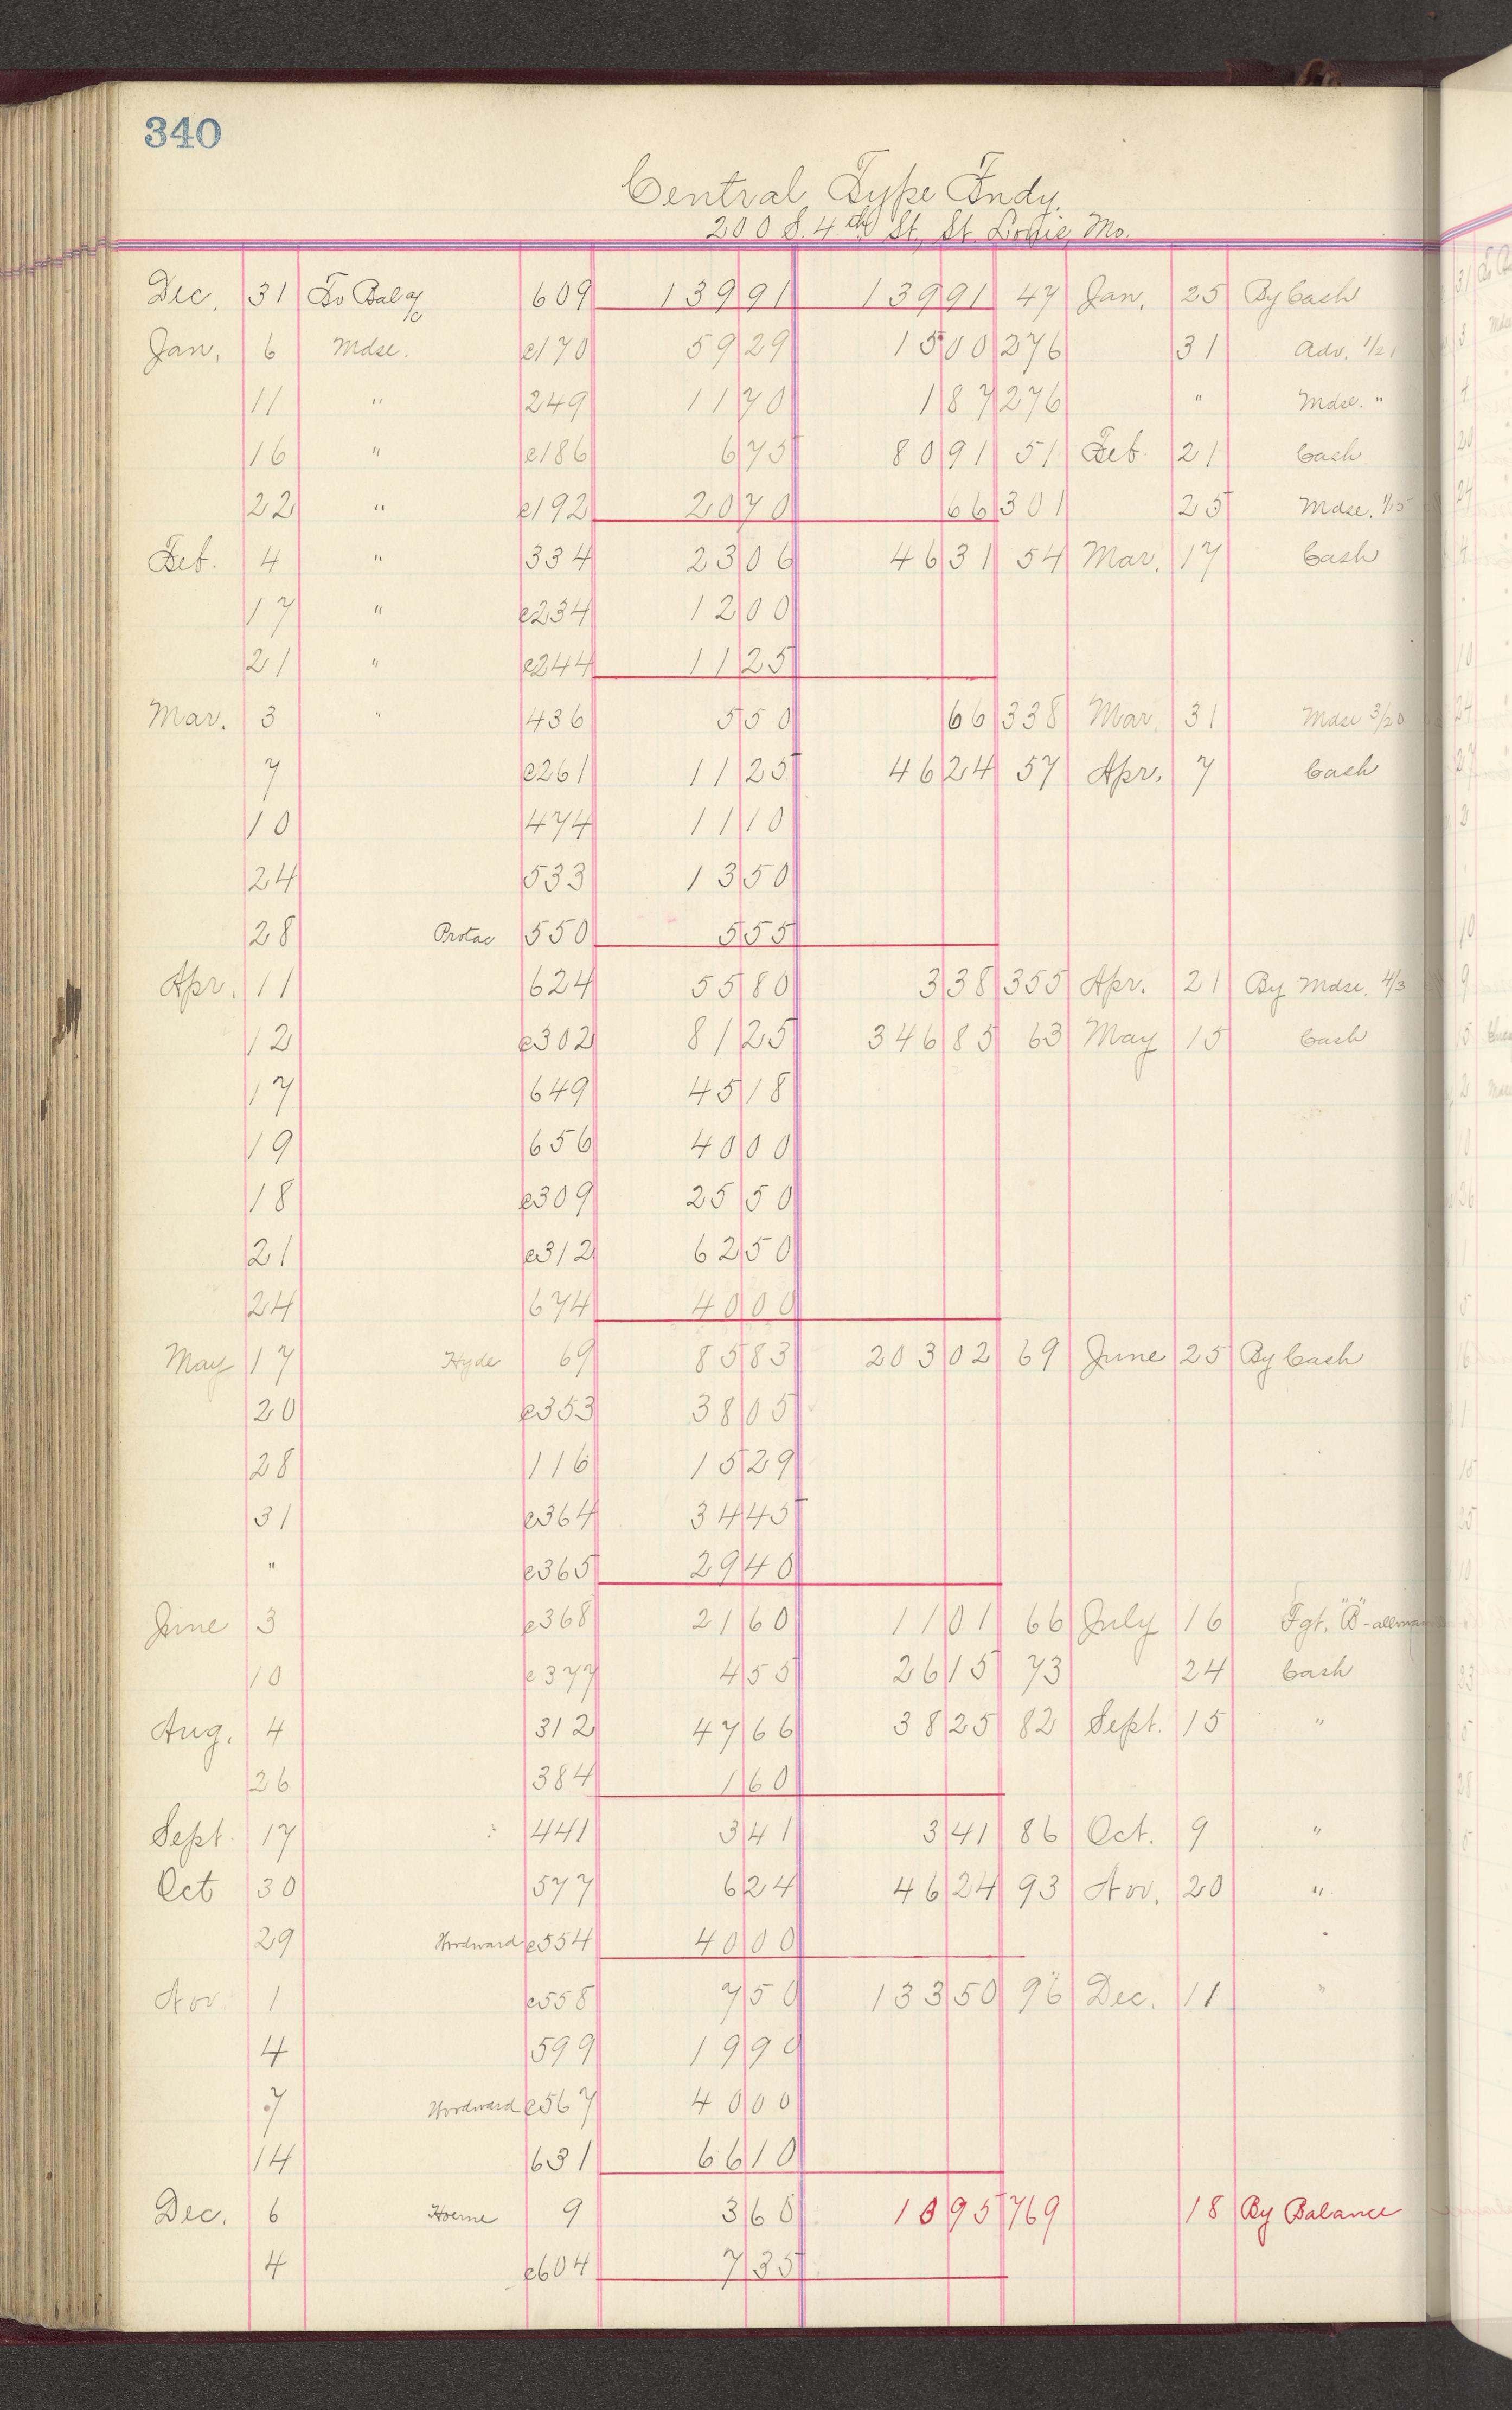 340
Central Type Fndy.
200 S. 4th St., St. Louis, Mo.
Dec. 31 To Bal a/c 609 139 91 139 91 47 Jan. 25 By Cash
Jan. 6 Mdse. e170 59 29 15 00 276 31 Adv. 1/21
11 " 249 11 70 1 87 276 " Mdse. "
16 " e186 6 75 80 91 51 Feb. 21 Cash
22 " e192 20 70 66 301 25 Mdse. 1/15
Feb. 4 " 334 23 06 46 31 54 Mar. 17 Cash
17 " e234 12 00
21 " e244 11 25
Mar. 3 " 436 5 50 66 338 Mar. 31 Mdse 3/20
7 e261 11 25 46 24 57 Apr. 7 Cash
10 474 11 10
24 533 13 50
28 550 5 55
Apr. 11 624 55 80 3 38 355 Apr. 21 By Mdse. 4/3
12 e302 81 25 346 85 63 May 15 Cash
17 649 45 18
19 656 40 00
18 e309 25 50
21 e312 62 50
24 674 40 00
May 17 Hyde 69 85 83 203 02 69 June 25 By Cash
20 e353 38 05
28 116 15 29
31 e364 34 45
" e365 29 40
June 3 e368 21 60 11 01 66 July 16 Fgt. "B"-
10 e377 4 55 26 15 73 24 Cash
Aug. 4 312 47 66 38 25 82 Sept. 15 "
26 384 1 60
Sept. 17 441 3 41 3 41 86 Oct. 9 "
Oct 30 577 6 24 46 24 93 Nov. 20 "
29 Woodward e554 40 00
Nov. 1 e558 7 50 133 50 96 Dec. 11 "
4 599 19 90
7 Woodward e567 40 00
14 631 66 10
Dec. 6 9 3 60 10 95 769 18 By Balance
4 e604 7 35